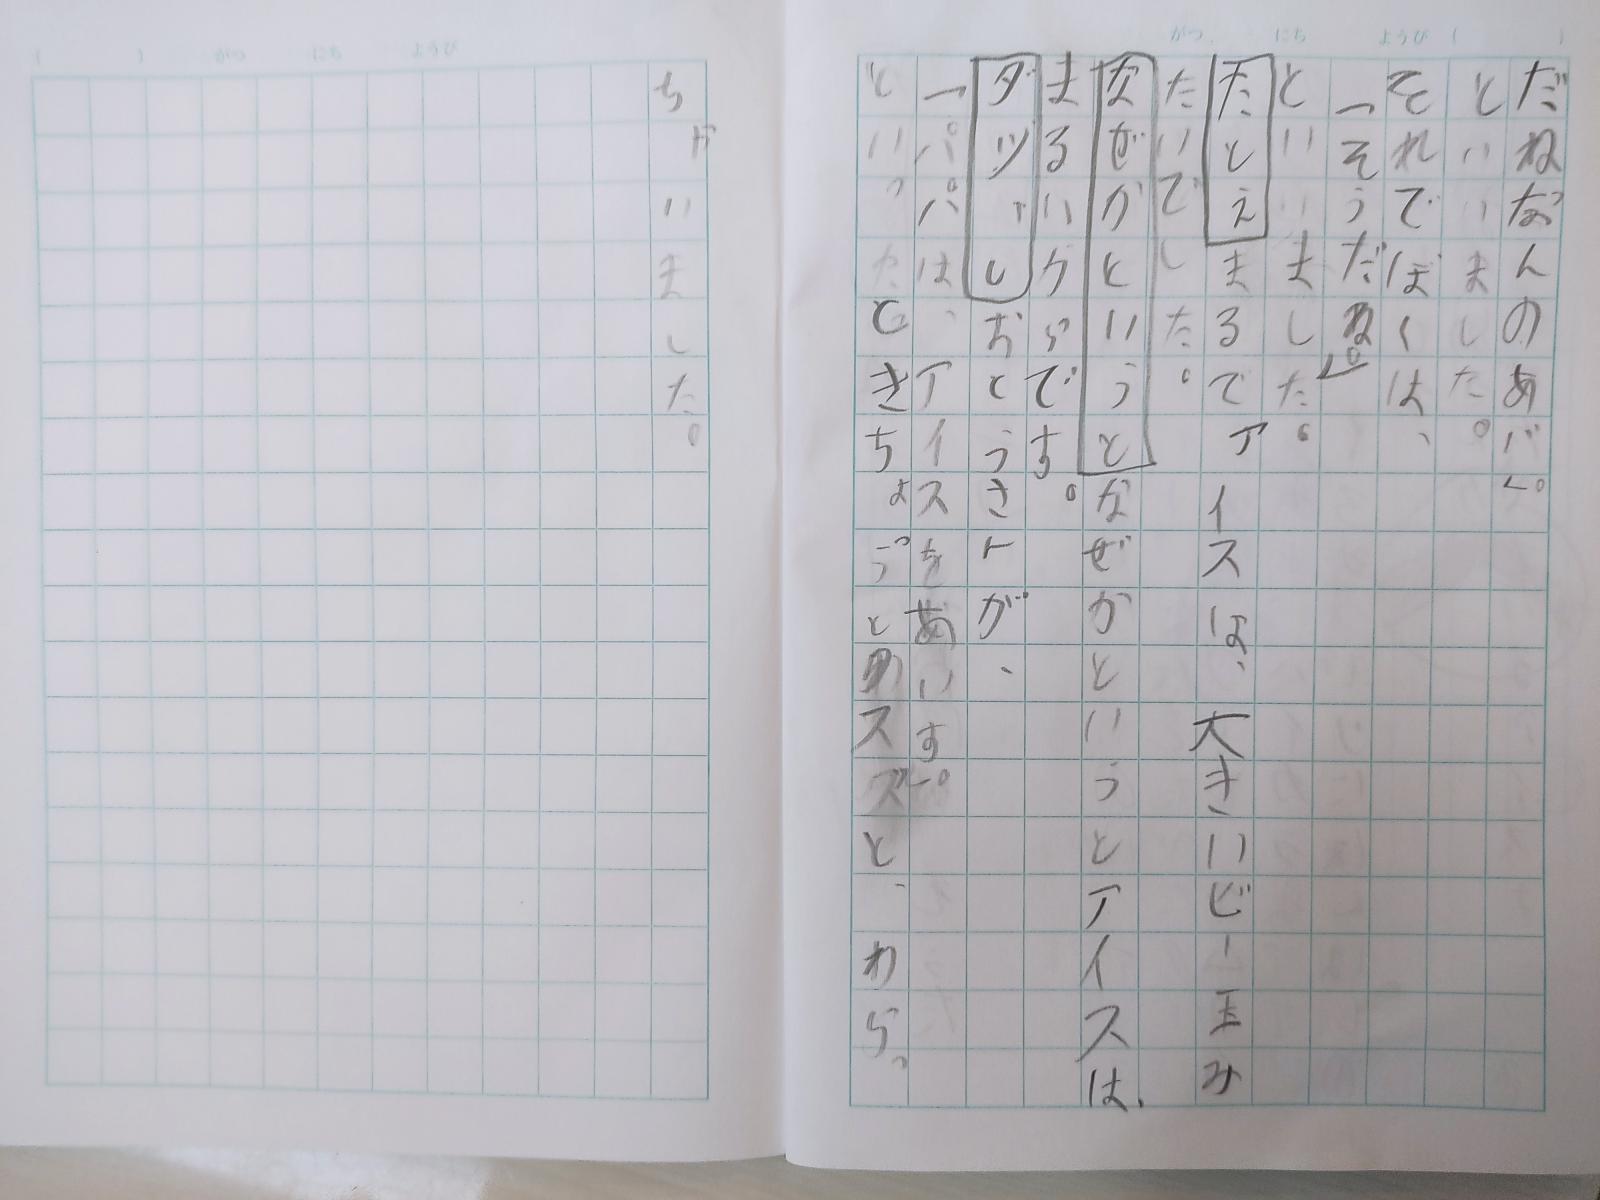 がつ にち ようび ( )
だねなんのあパ」。
といいました。
それでぼくは、
「そうだね。」
といいました。
たとえまるでアイスは、大きいビー玉み
たいでした。
なぜかというとなぜかというとアイスは、
まるいからです。
ダッシおとうさんが、
「パパは、アイスをあいす。」
といったときちょっと スズと、わらっ
ちゃいました。
( ) がつ にち ようび